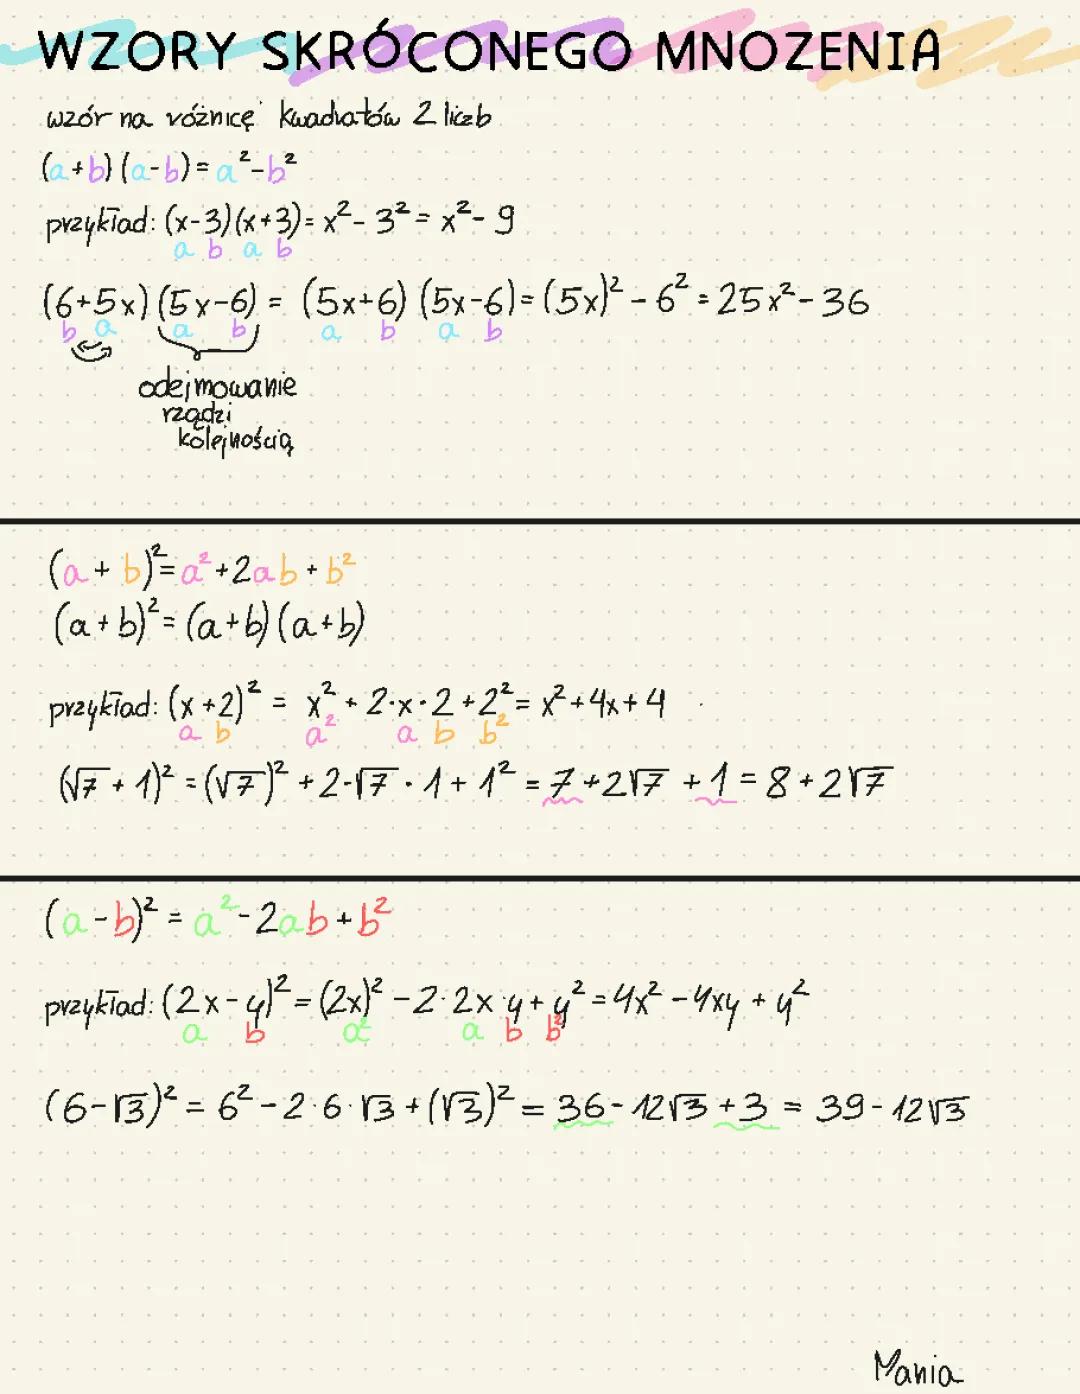 WZORY SKRÓCONEGO MNOZENIA
wzór na różnicę kwadratów 2 liczb
(a+b)(a-b)=a²-b²
przykład: (x-3)(x+3)=x²-3²=x²-9
a b a b
(6+5x)(5x-6) = (5x+6)(5x-6)=(5x)²-6²=25x²-36
b a a b a b a b
odejmowanie
rządzi
kolejnością
(a+b)²=a²+2ab+b²
(a+b)²=(a+b)(a+b)
przykład: (x+2)² = x²+2·x·2+2²=x²+4x+4
a b a² a b b²
(√7+1)²=(√7)²+2·√7·1+1²=7+2√7+1=8+2√7
(a-b)²=a²-2ab+b²
przykład: (2x-y)²=(2x)²-2·2x·y+y²=4x²-4xy+y²
a b a² a b b²
(6-√3)²=6²-2·6·√3+(√3)²=36-12√3+3=39-12√3
Mania